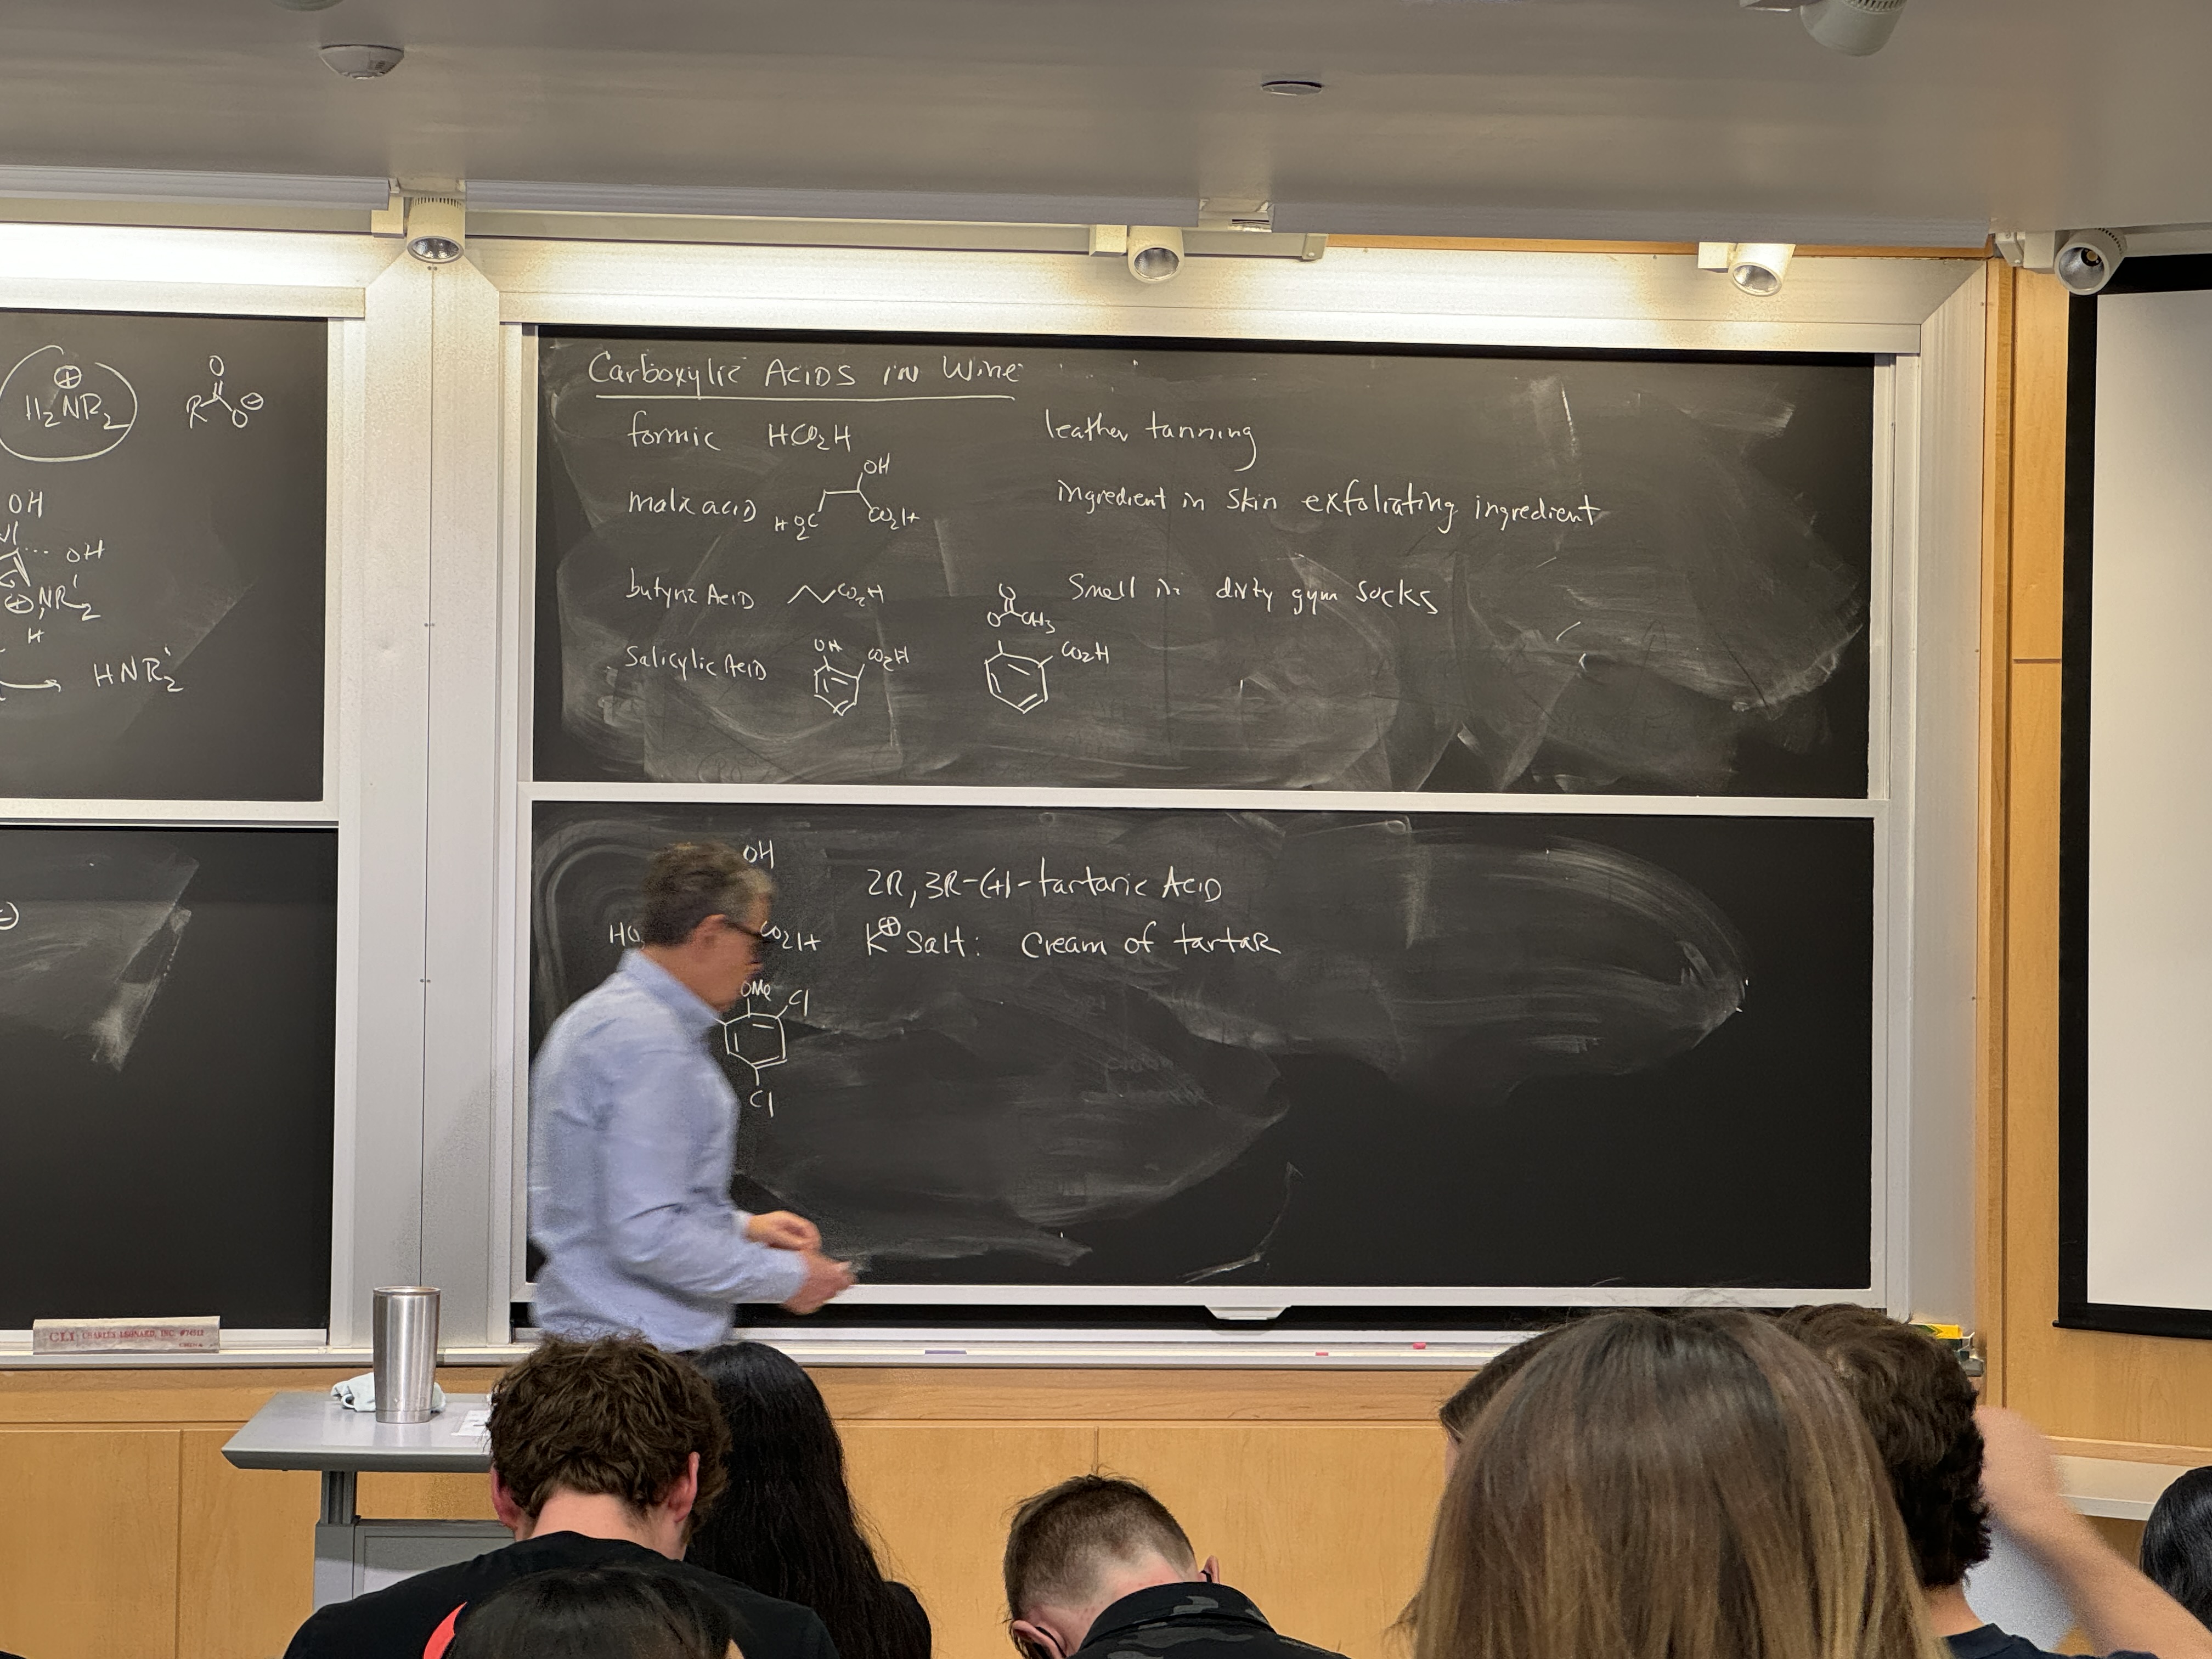 ⊕
H₂NR₂
O
R O ⊖
OH
OH
⊕ NR'₂
H
HNR'₂
Carboxylic Acids in Wine
formic HCO₂H leather tanning
OH
malic acid HO₂C CO₂H ingredient in skin exfoliating ingredient
butyric Acid CO₂H smell in dirty gym socks
O
O CH₃
Salicylic Acid OH CO₂H CO₂H
OH
2R, 3R-(+)-tartaric Acid
CO₂H K⊕ salt: Cream of tartar
OMe Cl
Cl
CLI CHARLES LEONARD, INC.